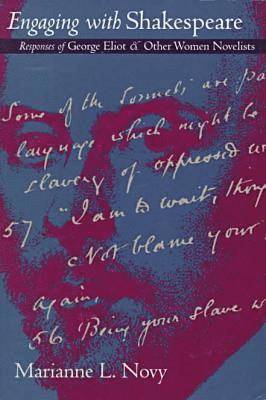 Engaging with Shakespeare
Responses of George Eliot & Other Women Novelists
Some of the Sonnets are pa
language which might be
slavery of oppressed w
57 "I am to wait, thoug
Not blame your
again,
56 Being your slave w
Marianne L. Novy